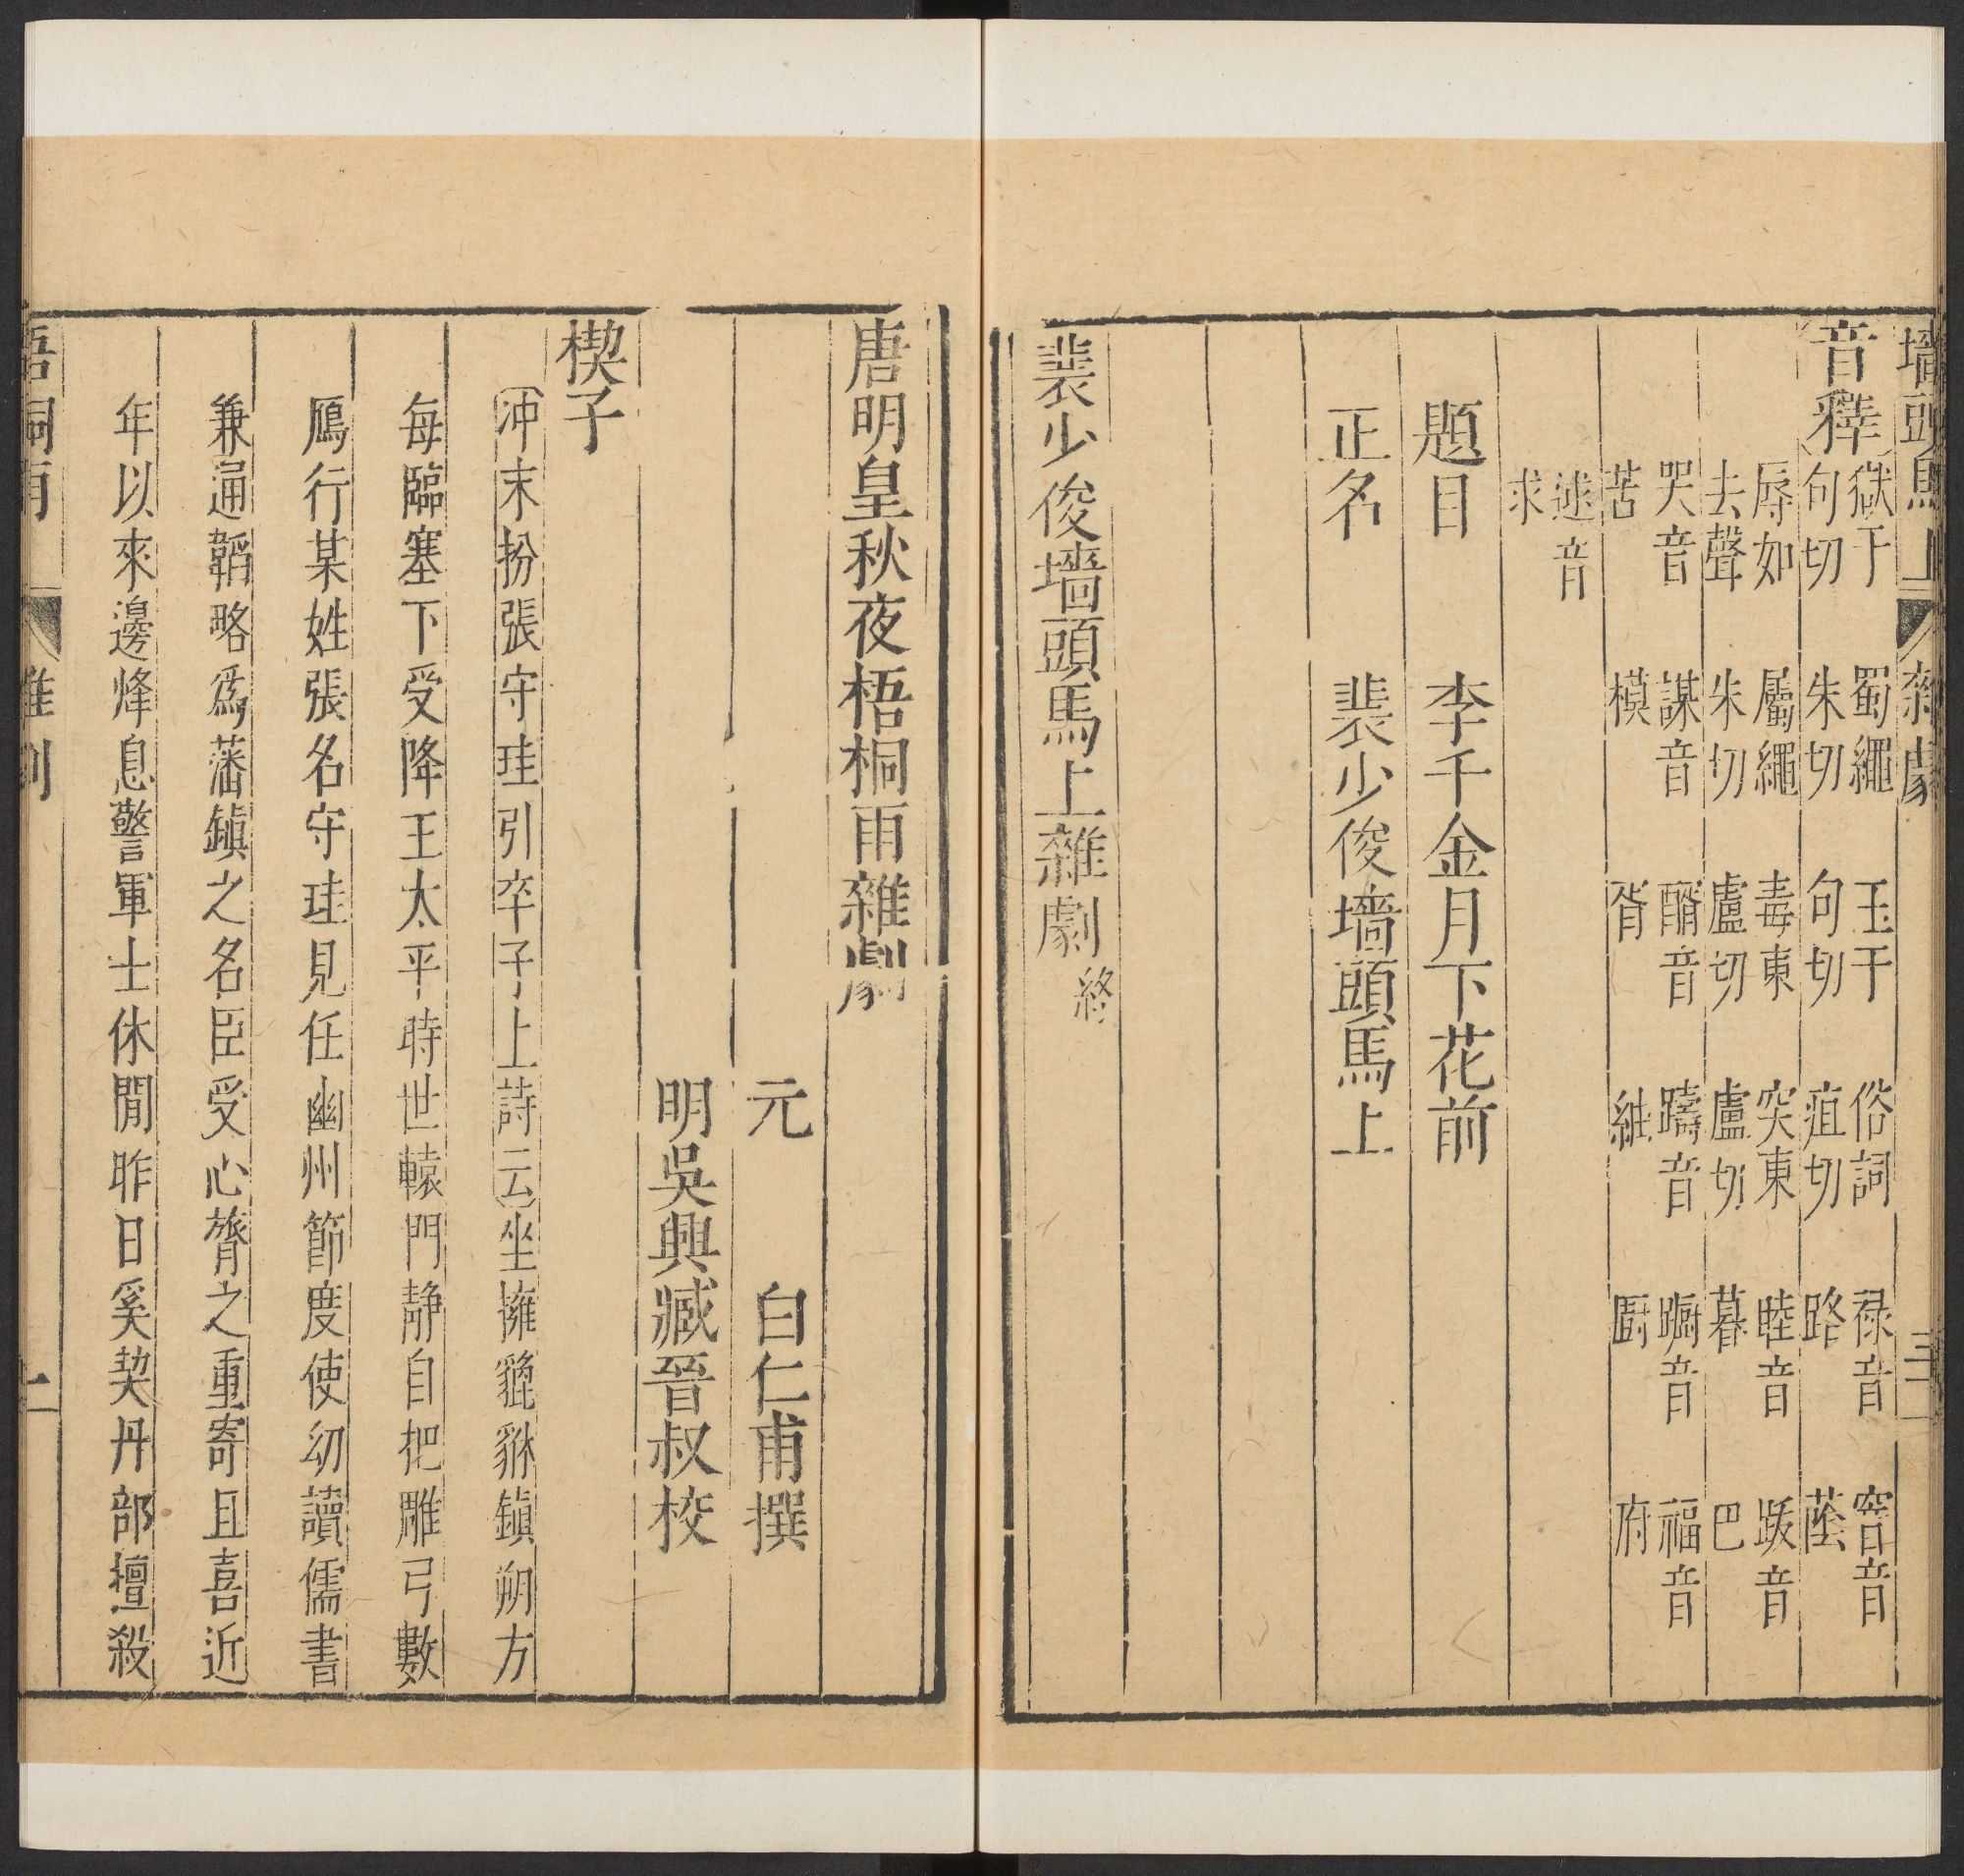 墻頭馬上 雜劇
音釋 獄于句切 蜀繩朱切 玉于句切 俗詞疽切 祿音路 窨音蔭
辱如去聲 屬繩朱切 毒東盧切 突東盧切 睦音暮 跋音巴
哭音苦 謀音模 醑音胥 躊音紬 躕音厨 福音府
逑音求
題目 李千金月下花前
正名 裴少俊墻頭馬上
裴少俊墻頭馬上雜劇 終
唐明皇秋夜梧桐雨雜劇
元 白仁甫撰
明吳興臧晉叔校
楔子
沖末扮張守珪引卒子上詩云坐擁貔貅鎮朔方
每臨塞下受降王太平時世轅門靜自把雕弓數
鴈行某姓張名守珪見任幽州節度使幼讀儒書
兼通韜略爲藩鎮之名臣受心膂之重寄且喜近
年以來邊烽息警軍士休閒昨日奚契丹部擅殺
梧桐雨 雜劇 一